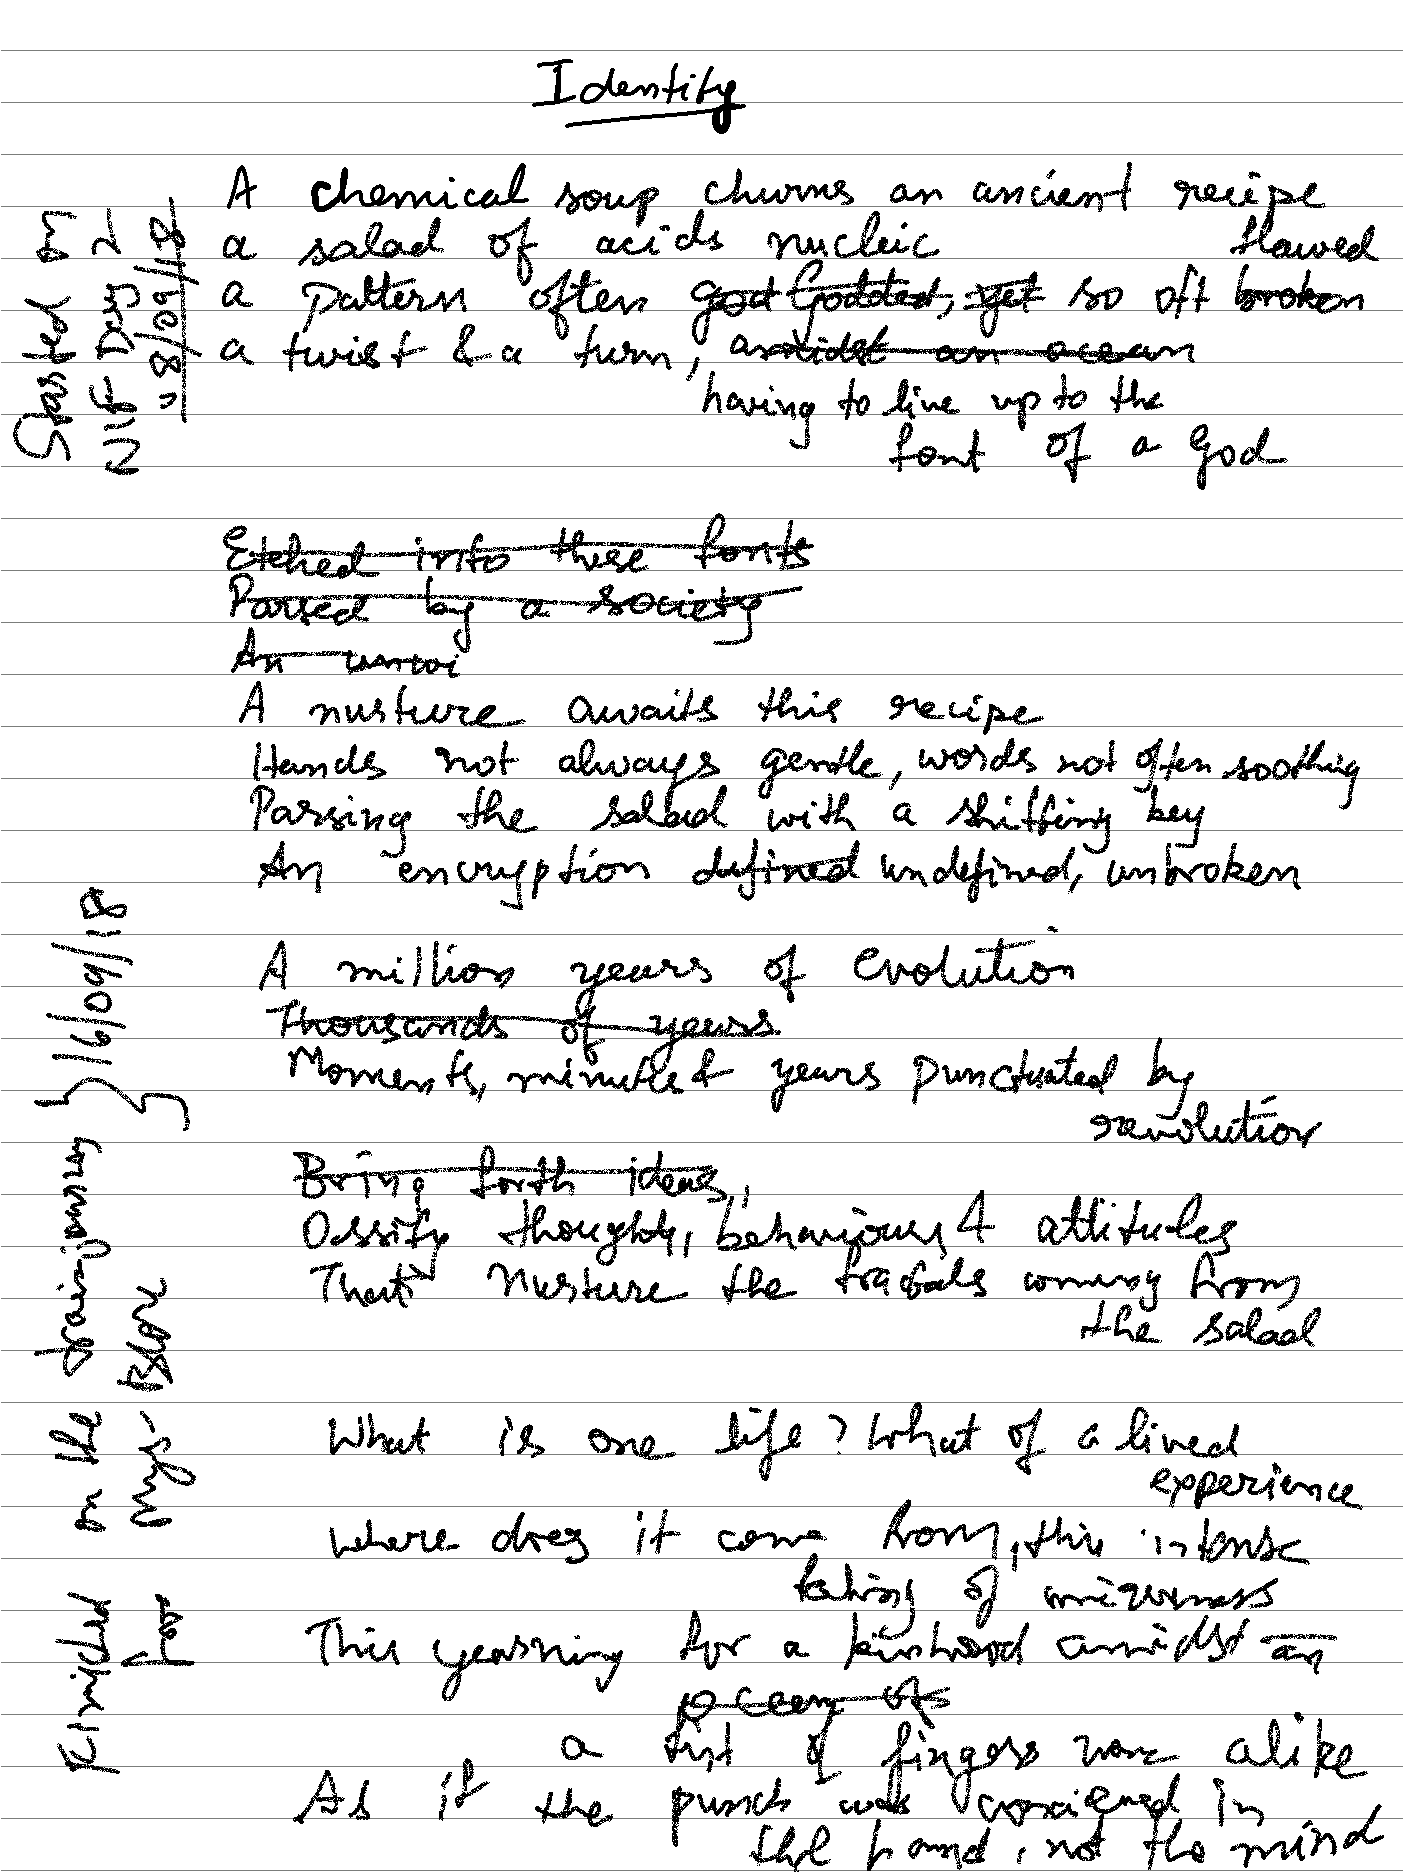 Identity
A chemical soup churns an ancient recipe
a salad of acids nucleic
flawed
a pattern often god Godded, yet so oft broken
a twist & a turn, amidst an ocean
having to live up to the
font of a God
Etched into these fonts
Parsed by a society
An
A nurture awaits this recipe
Hands not always gentle, words not often soothing
Parsing the salad with a shifting key
An encryption defined undefined, unbroken
A million years of Evolution
Thousands of years
Moments, minutes & years punctuated by
revolution
Bring forth ideas,
Ossify thoughts, behaviours & attitudes
That nurture the fractals coming from
the salad
What is one life? What of a lived
experience
Where does it come from, this intense
feeling of uniqueness
This yearning for a kinhood amidst an
ocean of
a fist of fingers none alike
As if the punch was conceived in
the hand, not the mind
Started on
NLF Day 2
8/09/18
Finished on the train journey
from Mys- Blore
16/09/18